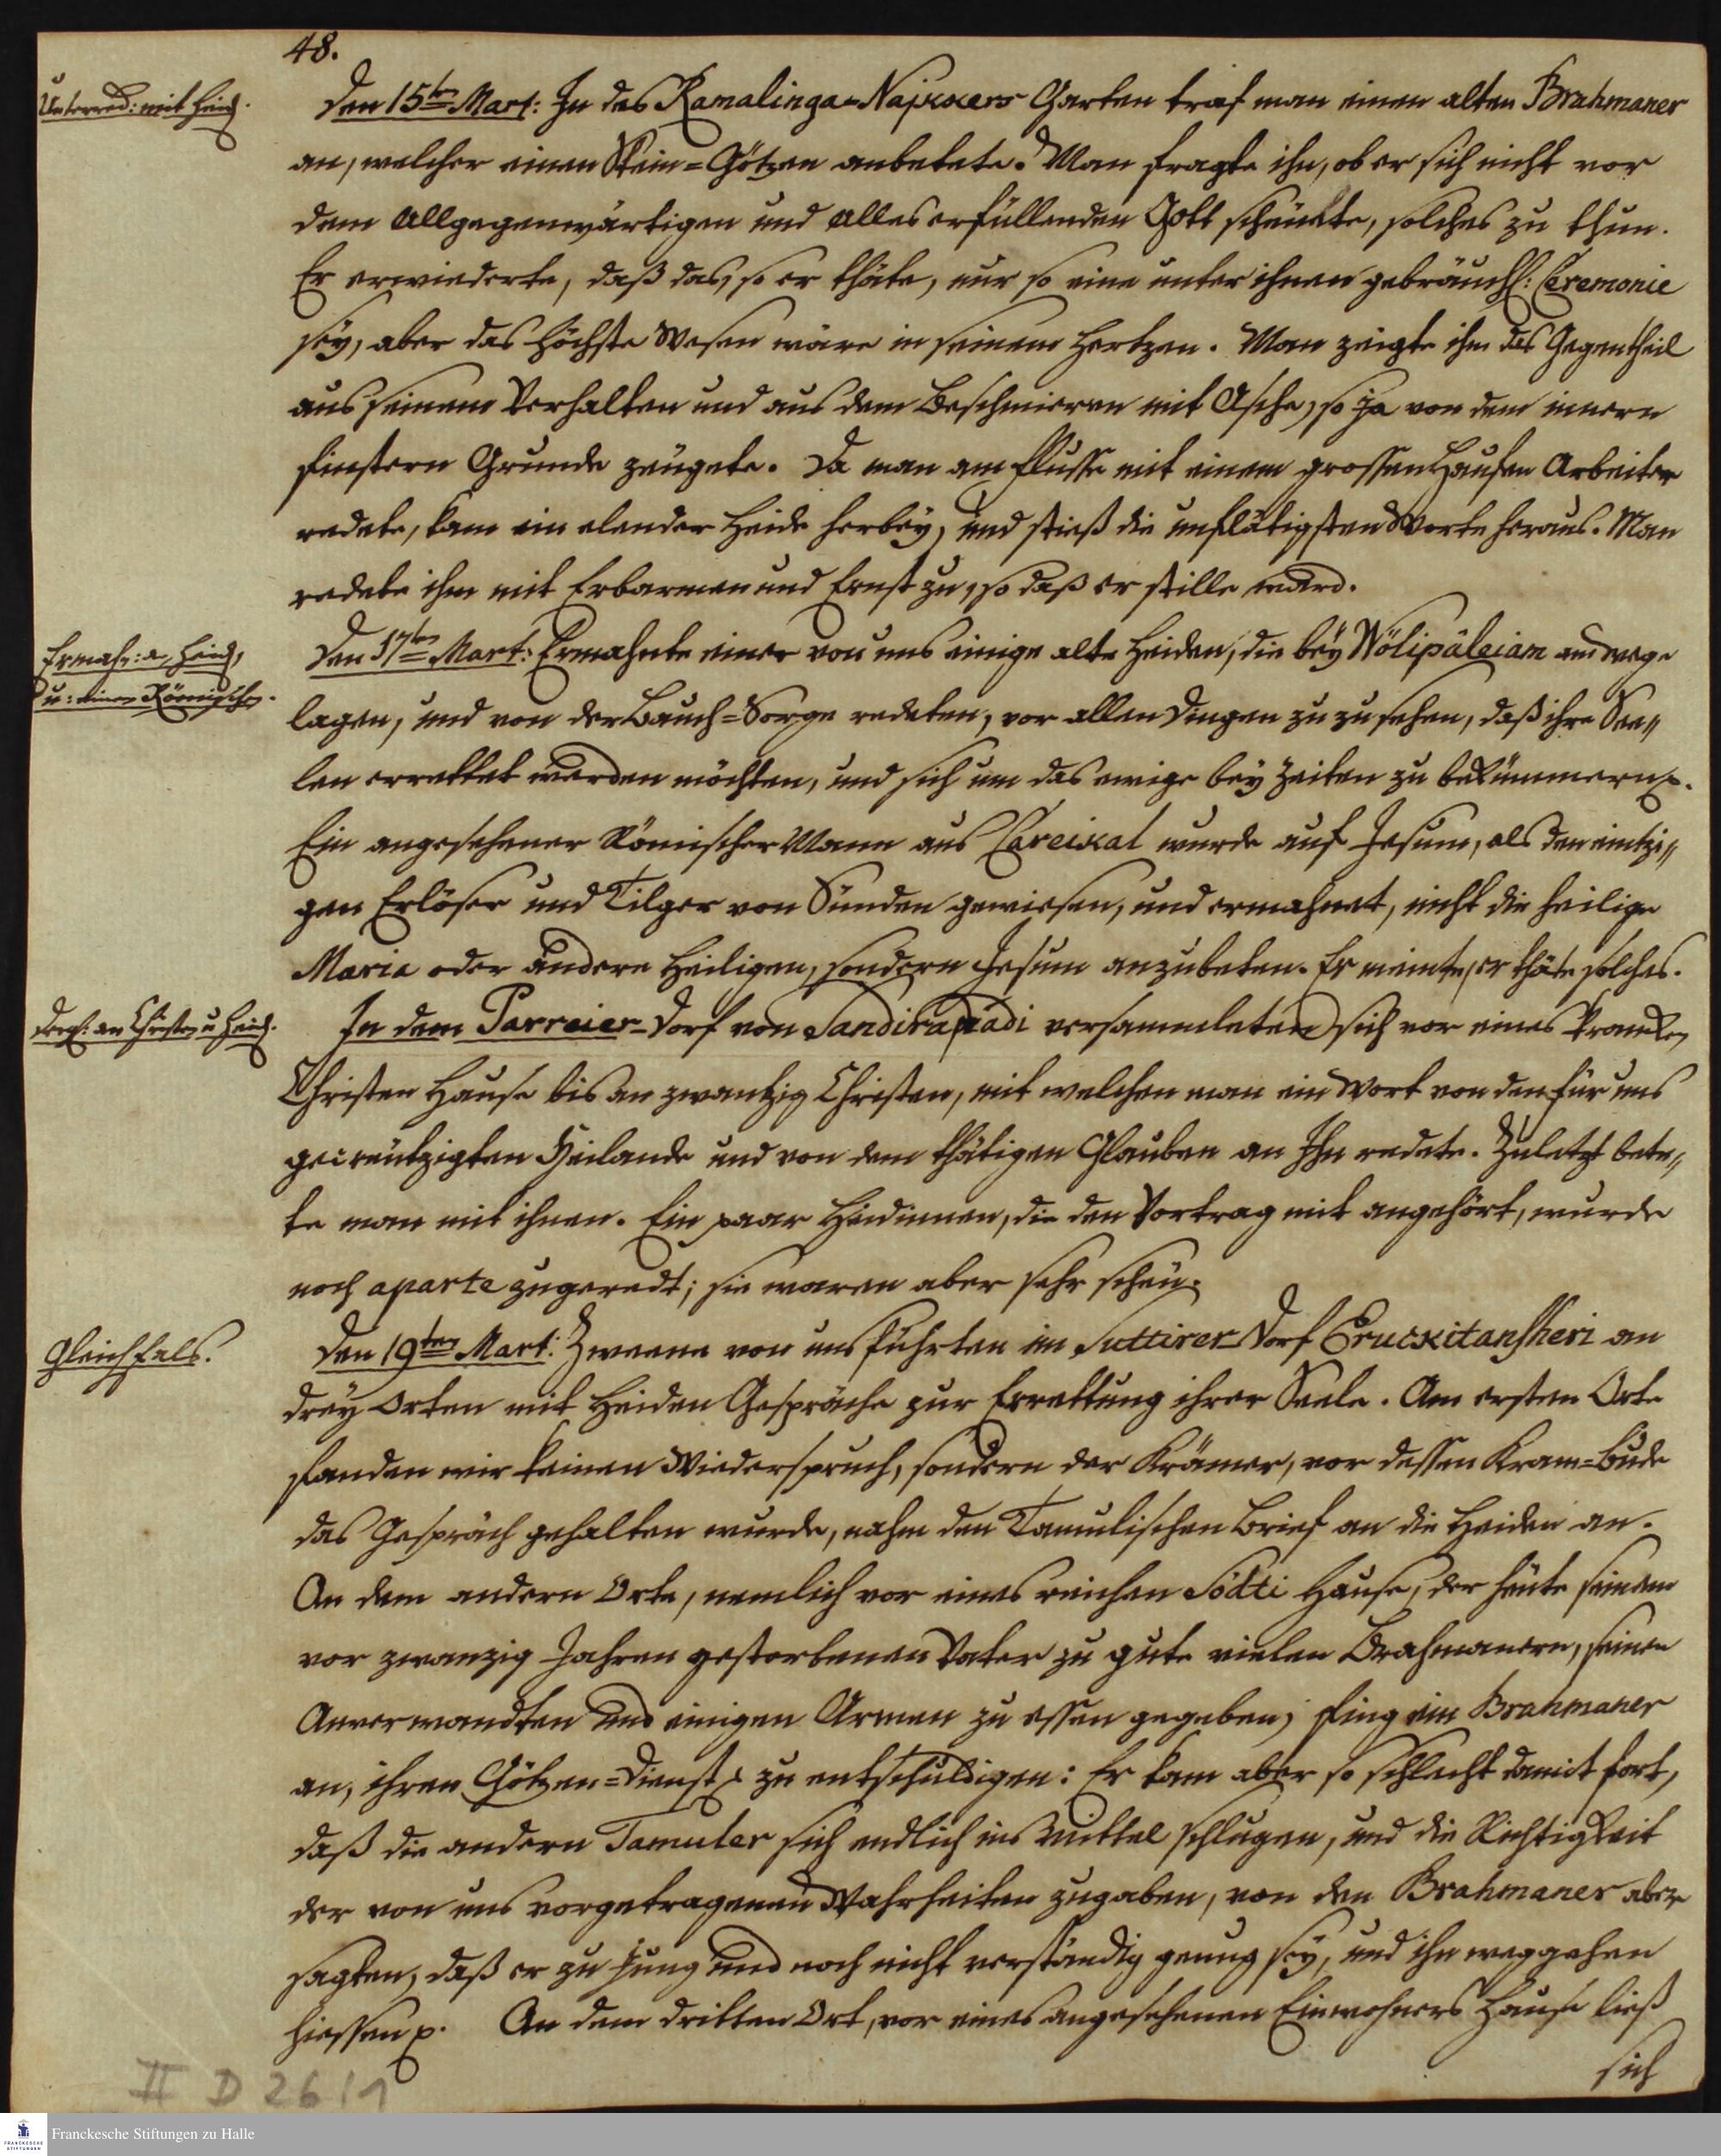 48.
Unterred: mit Heid.
Den 15ten Mart: In des Ramalinga-Najxxers Garten traf man einen alten Brahmaner
an, welcher einen Stein=Götzen anbetete. Man fragte ihn, ob er sich nicht vor
dem Allgegenwärtigen und alles erfüllenden Gott scheuete, solches zu thun.
Er erwiederte, daß das, so er thäte, nur so eine unter ihnen gebräuchl: Ceremonie
sey, aber das höchste Wesen wäre in seinem Hertzen. Man zeigte ihm das Gegentheil
aus seinem Verhalten und aus dem Beschmieren mit Asche, so ja von dem innern
finstern Grunde zeugete. Da man am Flusse mit einem grossen Haufen Arbeiter
redete, kam ein elender Heide herbey, und stieß die unflätigsten Worte heraus. Man
redete ihm mit Erbarmen und Ernst zu, so daß er stille ward.
Ermahn: a, Heid,
u: einen Römischen.
Den 17ten Mart: Ermahnte einer von uns einige alte Heiden, die bey Wölipäleiam am wege
lagen, und von der Bauch=Sorge redeten, vor allen Dingen zu zu sehen, daß ihre See„
len errettet werden möchten, und sich um das ewige bey Zeiten zu bekümmern p.
Ein angesehener Römischer Mann aus Careixal wurde auf Jesum, als den eintzi„
gen Erlöser und Tilger von Sünden gewiesen, und ermahnet, nicht die heilige
Maria oder andere Heiligen, sondern Jesum anzubeten. Er meinte, er thäte solches.
Dergl: an Christen u Heid.
In dem Parreier-Dorf von Sandirapadi versammleten sich vor eines krancken
Christen Hause bis an zwantzig Christen, mit welchen man ein Wort von den für uns
gecreutzigten Heilande und von dem thätigen Glauben an Ihn redete. Zuletzt bete„
te man mit ihnen. Ein paar Heidinnen, die den Vortrag mit angehört, wurde
noch aparte zugeredt; sie waren aber sehr scheu.
Gleichfals.
Den 19ten Mart: Zweene von uns führten im Suttirer-Dorf Eruckitanscheri an
drey Orten mit Heiden Gespräche zur Errettung ihrer Seele. Am ersten Orte
fanden wir keinen Wiederspruch, sondern der Krämer, vor dessen Kram=Bude
das Gespräch gehalten wurde, nahm den Tamulischen Brief an die Heiden an.
An dem andern Orte, nemlich vor eines reichen Södti Hause, der heute seinem
vor zwanzig Jahren gestorbenen Vater zu gute vielen Brahmanern, seinen
Anverwandten und einigen Armen zu essen gegeben, fing ein Brahmaner
an, ihren Götzen=Dienst zu entschuldigen: Er kam aber so schlecht damit fort,
daß die andern Tamuler sich endlich ins Mittel schlugen, und die Richtigkeit
der von uns vorgetragenen Wahrheiten zugaben, von den Brahmaner aber
sagten, daß er zu jung und noch nicht verständig genung sey, und ihn weggehen
hiessen p. An dem dritten Ort, vor eines angesehenen Einwohners Hause ließ
sich
II D 26/1
FRANCKESCHE STIFTUNGEN
Franckesche Stiftungen zu Halle